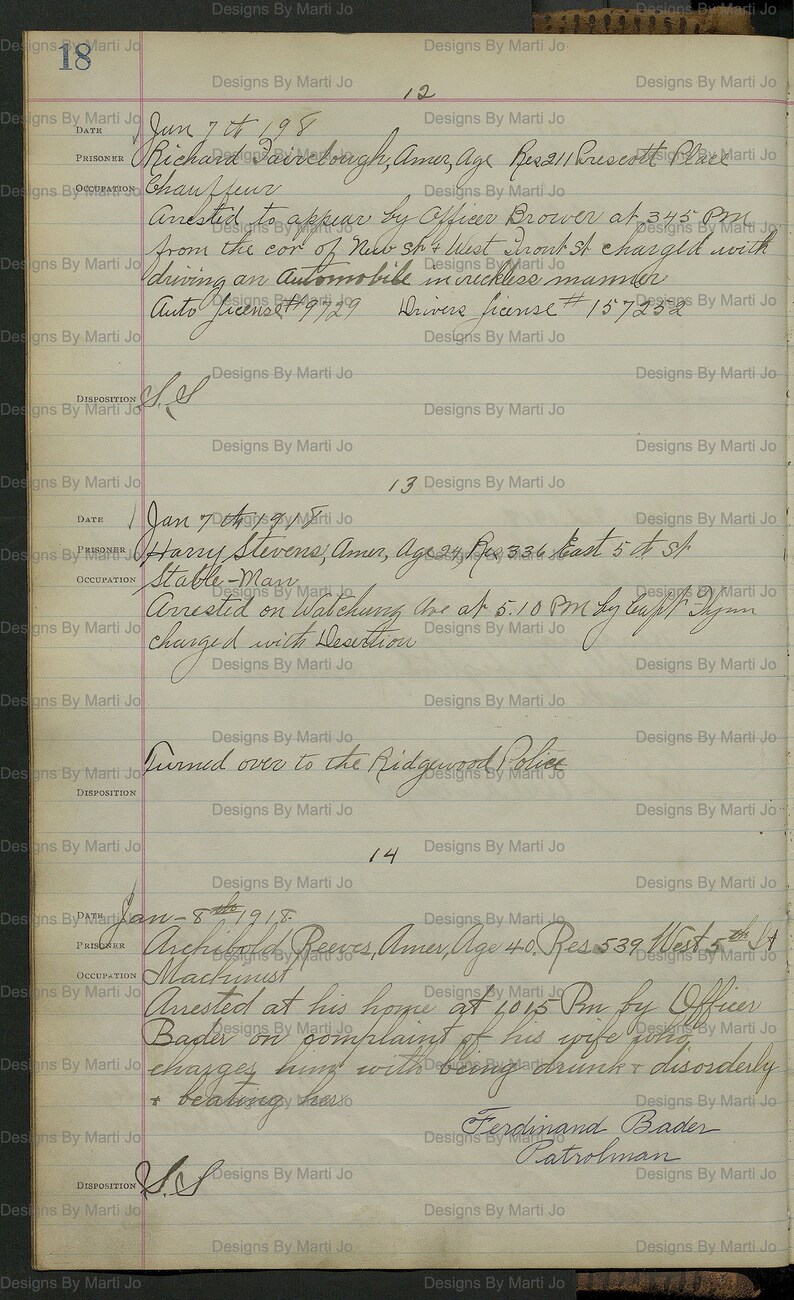 18
12
DATE Jan 7th 198
PRISONER Richard Fairclough, Amer, Age Res 211 Prescott Place
OCCUPATION Chauffeur
Arrested to appear by Officer Brower at 345 PM
from the cor of New St & West Front St charged with
driving an Automobile in reckless manner
Auto License # 9729 Drivers License # 157252
DISPOSITION S.S
13
DATE Jan 7th 1918
PRISONER Harry Stevens, Amer, Age 24, Res 336 East 5th St
OCCUPATION Stable-Man
Arrested on Watchung Ave at 5.10 PM by Capt Flynn
charged with Desertion
Turned over to the Ridgewood Police
DISPOSITION
14
DATE Jan - 8th 1918.
PRISONER Archibold Reeves, Amer, Age 40. Res 539 West 5th St
OCCUPATION Machinist
Arrested at his home at 1015 Pm by Officer
Bader on complaint of his wife who
charges him with being drunk + disorderly
+ beating her
Ferdinand Bader
Patrolman
DISPOSITION S.S
Designs By Marti Jo